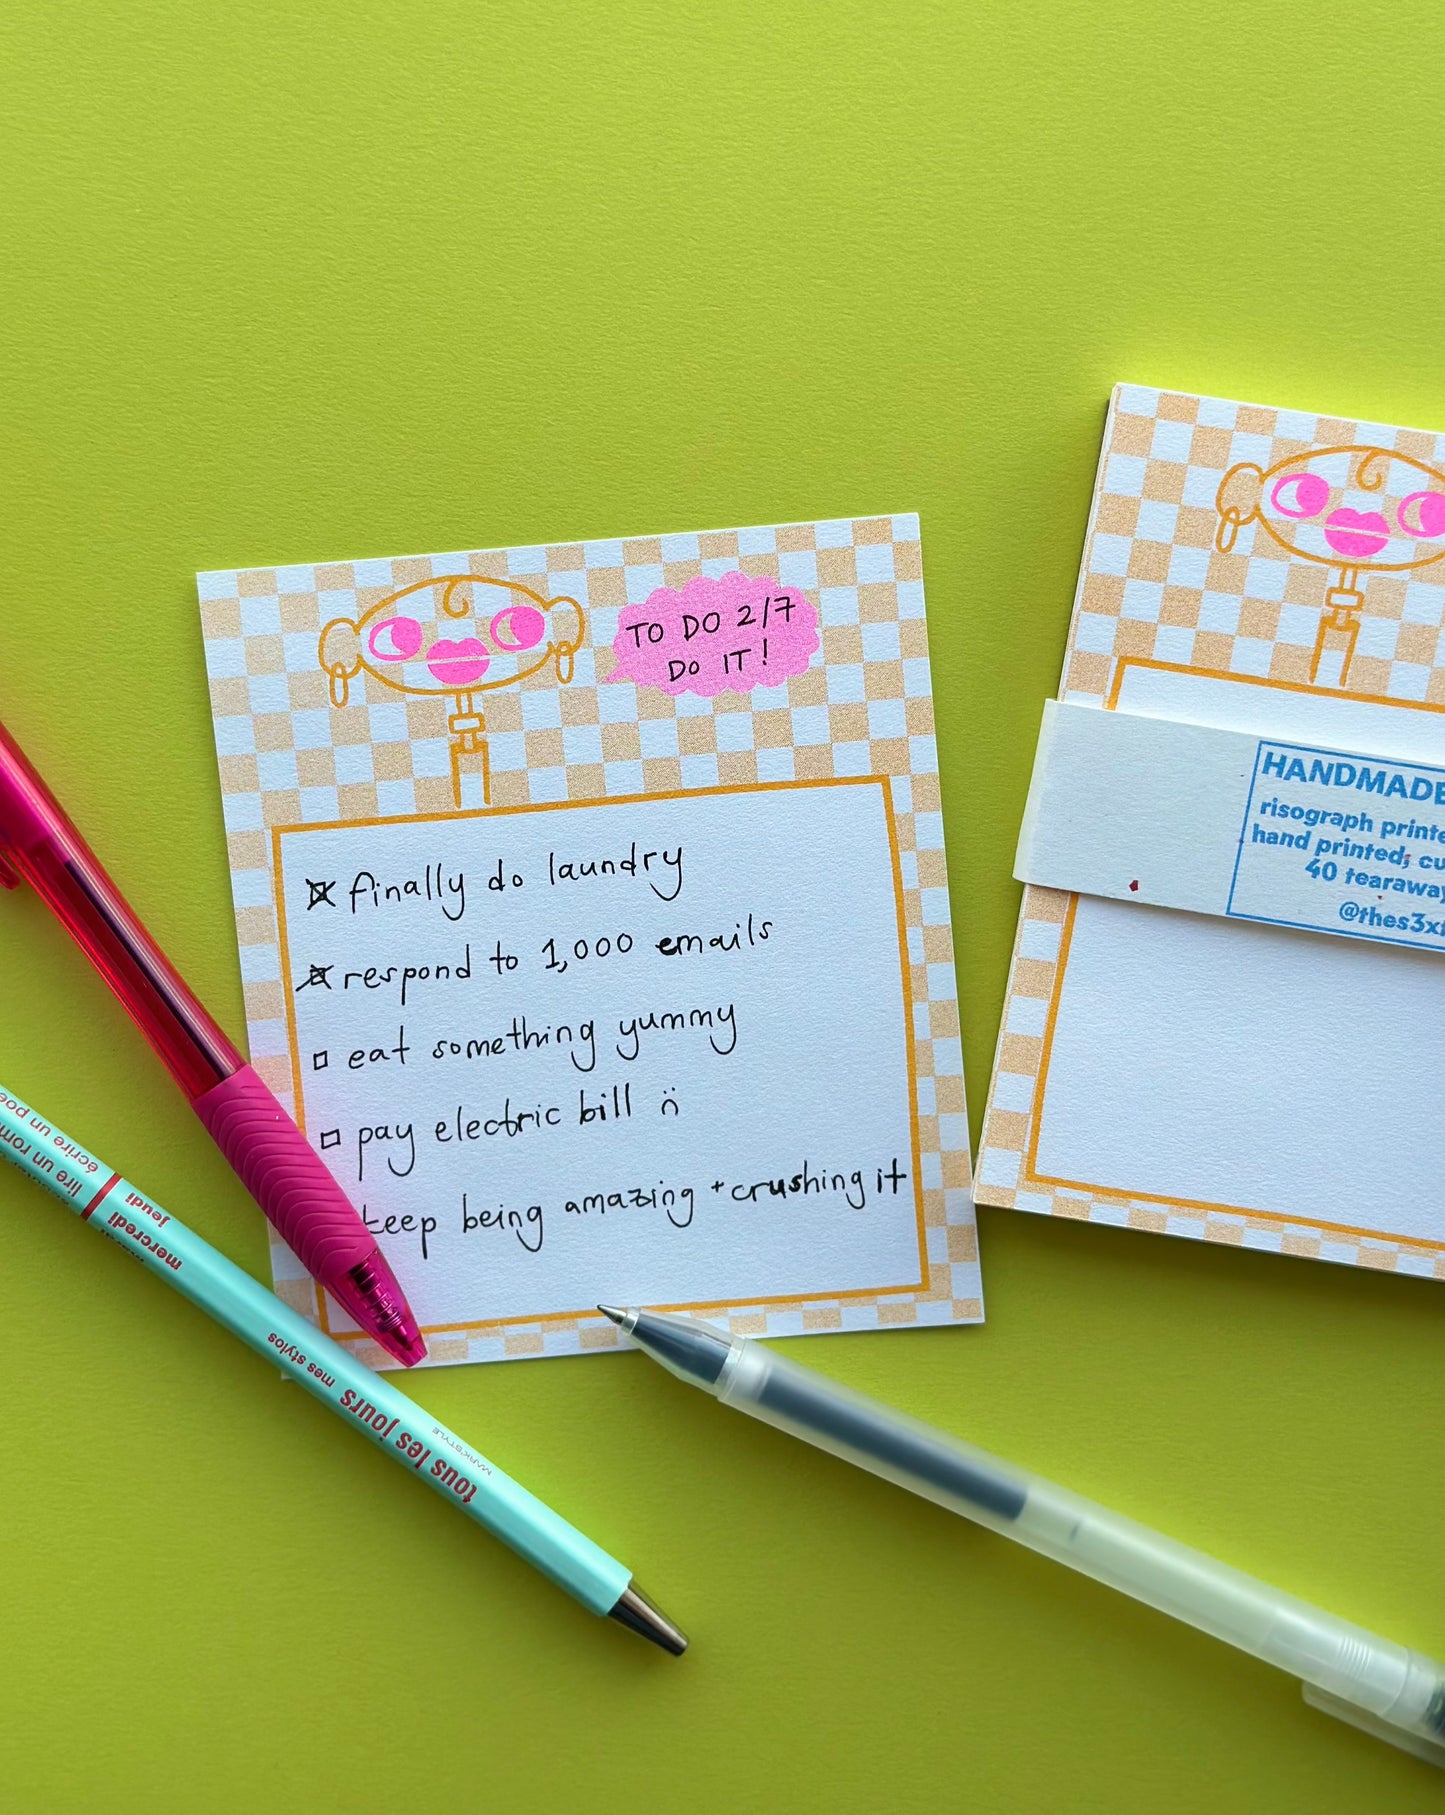 TO DO 2/7
DO IT!
finally do laundry
respond to 1,000 emails
eat something yummy
pay electric bill ☹
keep being amazing + crushing it
HANDMADE
risograph printe
hand printed, cu
40 tearaway
@thes3x
tous les jours
MARK'STYLE
mes stylos
mercredi
jeudi
lire un rom
écrire un poè